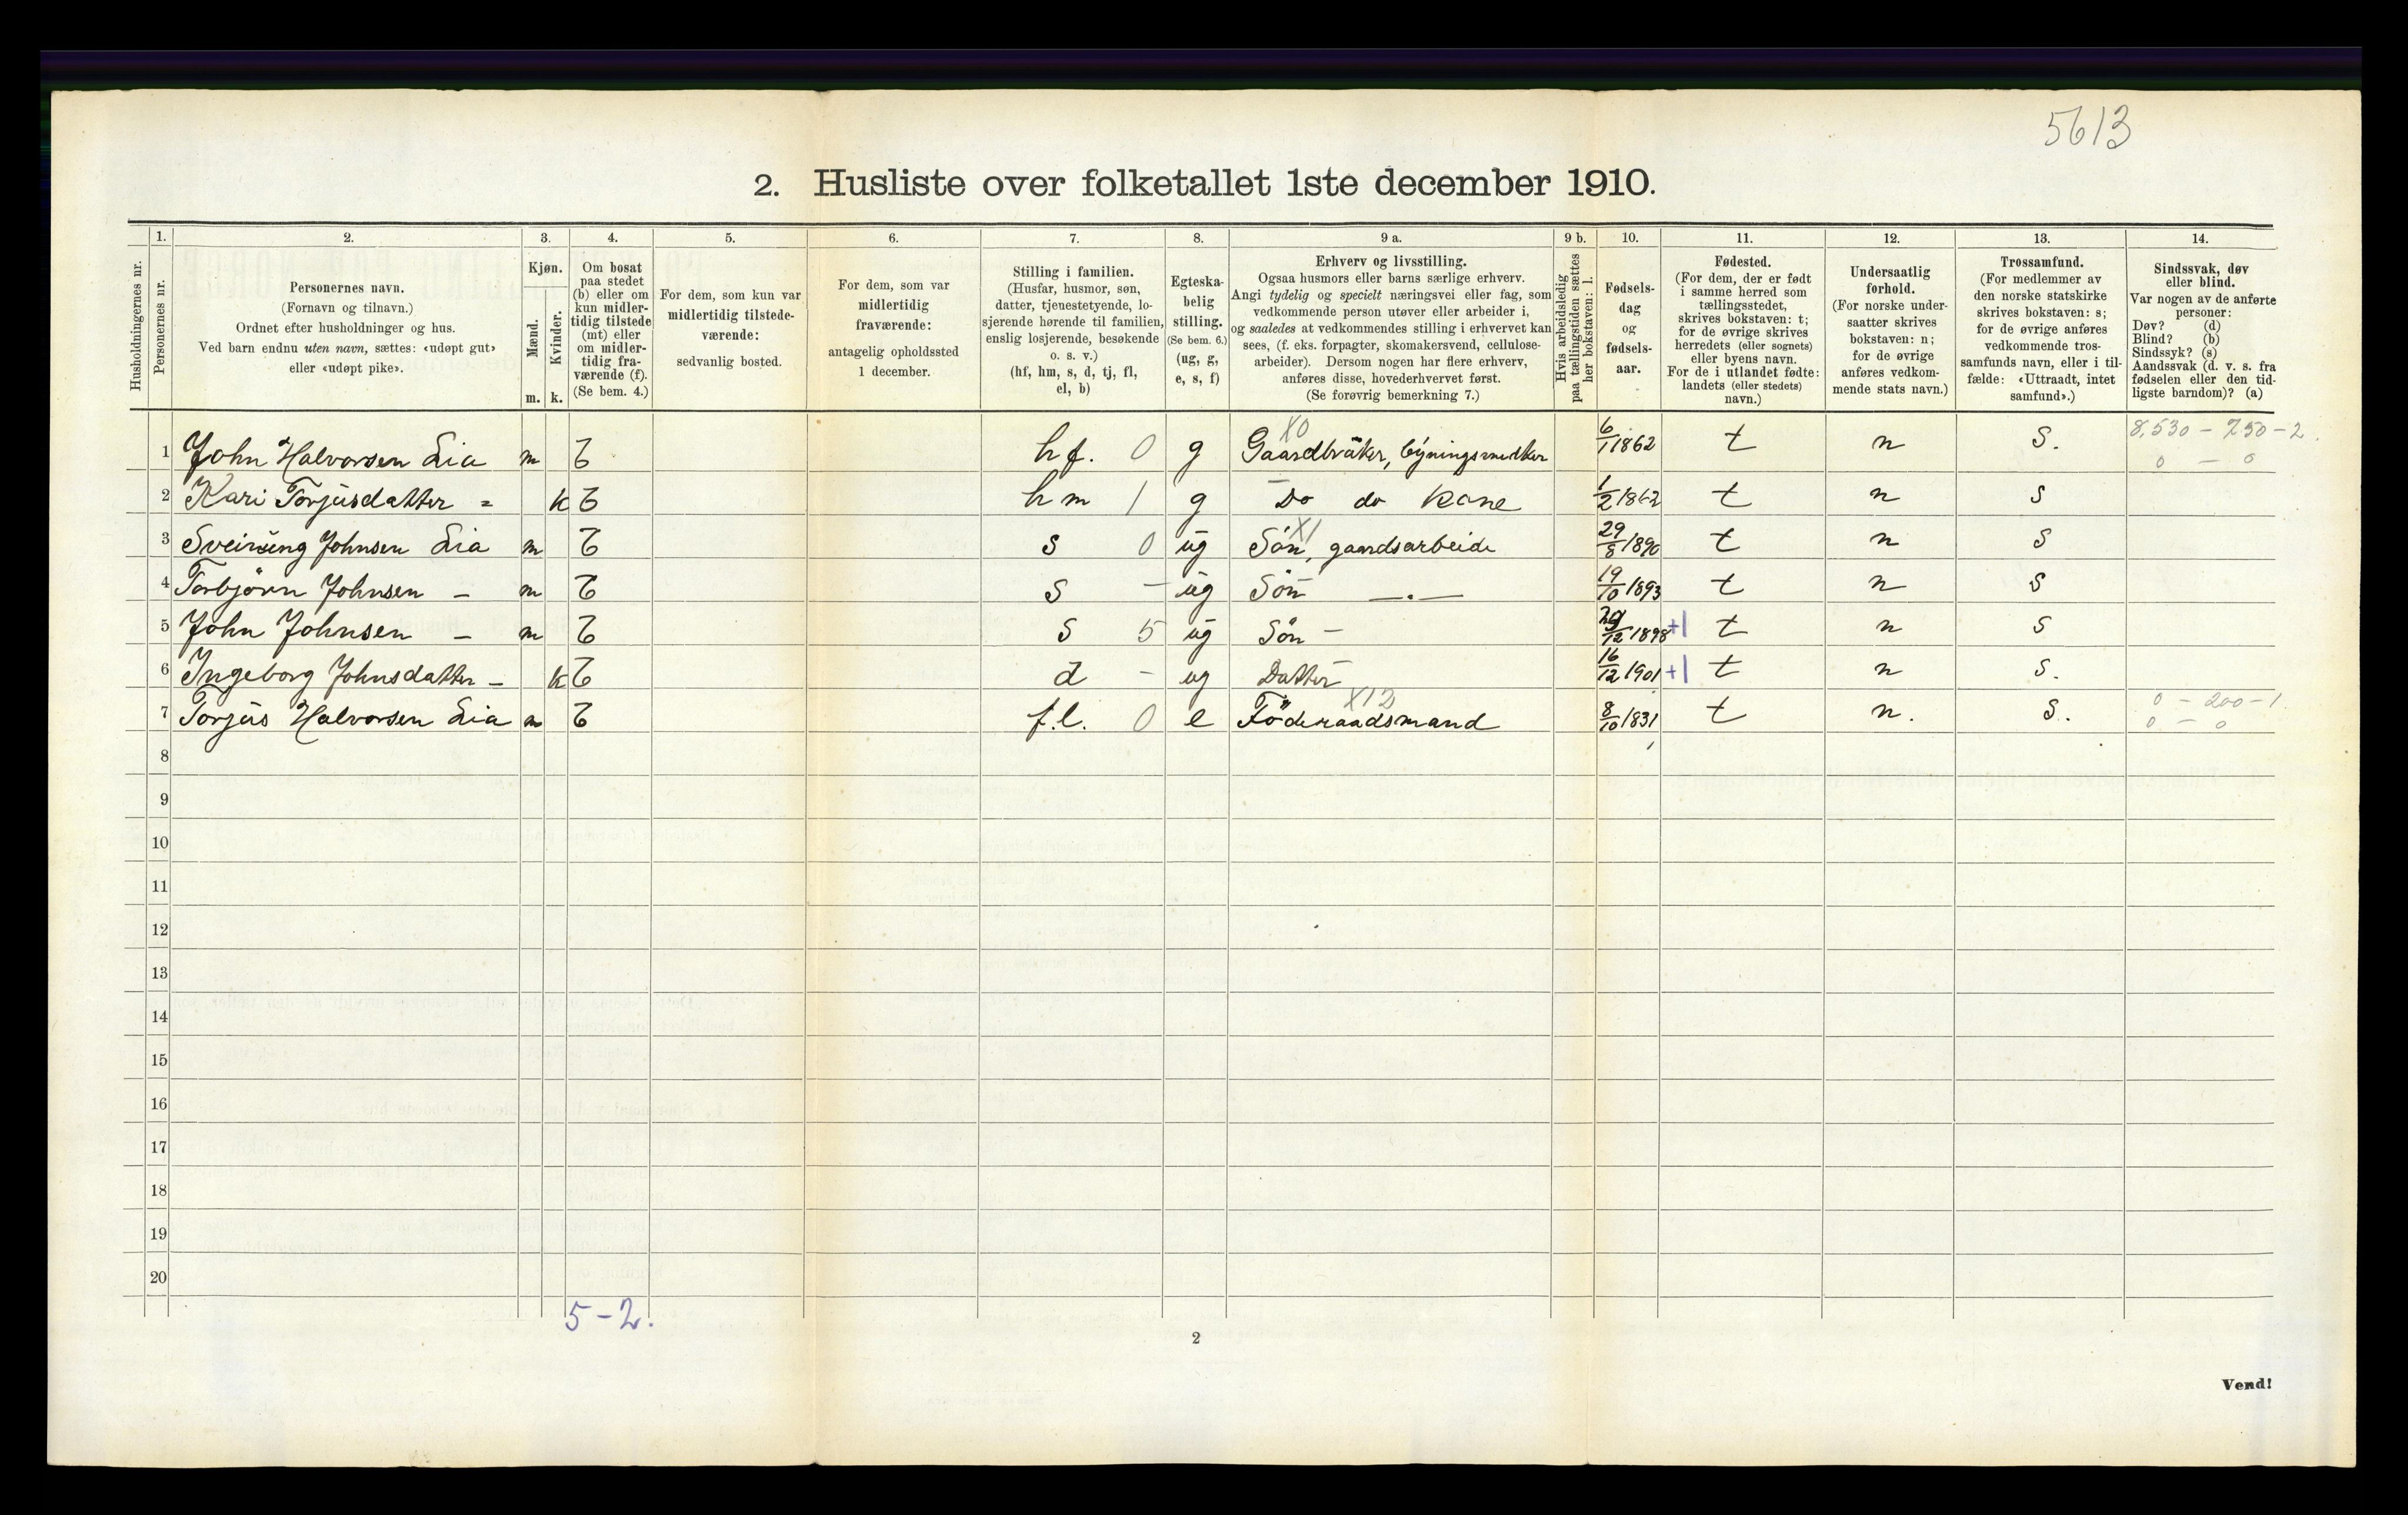 5613
2. Husliste over folketallet 1ste december 1910.
Husholdningernes nr.
1.
Personernes nr.
2.
Personernes navn.
(Fornavn og tilnavn.)
Ordnet efter husholdninger og hus.
Ved barn endnu uten navn, sættes: «udøpt gut»
eller «udøpt pike».
3.
Kjøn.
Mænd.
Kvinder.
m. k.
4.
Om bosat
paa stedet
(b) eller om
kun midler-
tidig tilstede
(mt) eller
om midler-
tidig fra-
værende (f).
(Se bem. 4.)
5.
For dem, som kun var
midlertidig tilstede-
værende:
sedvanlig bosted.
6.
For dem, som var
midlertidig
fraværende:
antagelig opholdssted
1 december.
7.
Stilling i familien.
(Husfar, husmor, søn,
datter, tjenestetyende, lo-
sjerende hørende til familien,
enslig losjerende, besøkende
o. s. v.)
(hf, hm, s, d, tj, fl,
el, b)
8.
Egteska-
belig
stilling.
(Se bem. 6.)
(ug, g,
e, s, f)
9 a.
Erhverv og livsstilling.
Ogsaa husmors eller barns særlige erhverv.
Angi tydelig og specielt næringsvei eller fag, som
vedkommende person utøver eller arbeider i,
og saaledes at vedkommendes stilling i erhvervet kan
sees, (f. eks. forpagter, skomakersvend, cellulose-
arbeider). Dersom nogen har flere erhverv,
anføres disse, hovederhvervet først.
(Se forøvrig bemerkning 7.)
9 b.
Hvis arbeidsledig
paa tællingstiden sættes
her bokstaven: l.
10.
Fødsels-
dag
og
fødsels-
aar.
11.
Fødested.
(For dem, der er født
i samme herred som
tællingsstedet,
skrives bokstaven: t;
for de øvrige skrives
herredets (eller sognets)
eller byens navn.
For de i utlandet fødte:
landets (eller stedets)
navn.)
12.
Undersaatlig
forhold.
(For norske under-
saatter skrives
bokstaven: n;
for de øvrige
anføres vedkom-
mende stats navn.)
13.
Trossamfund.
(For medlemmer av
den norske statskirke
skrives bokstaven: s;
for de øvrige anføres
vedkommende tros-
samfunds navn, eller i til-
fælde: «Uttraadt, intet
samfund».)
14.
Sindssvak, døv
eller blind.
Var nogen av de anførte
personer:
Døv? (d)
Blind? (b)
Sindssyk? (s)
Aandssvak (d. v. s. fra
fødselen eller den tid-
ligste barndom)? (a)
X0 8,530 - 750 - 2.
1 John Halvorsen Lia m b hf. 0 g Gaardbruker, 6/1 1862 t n S. 0 - 0
2 Kari Torjusdatter = k b hm 1 g Do do Kone 1/2 1862 t n S
X1
3 Sveinung Johnsen Lia m b s 0 ug Sön, gaardsarbeide 29/8 1890 t n S
4 Torbjörn Johnsen — m b s - ug Sön —.— 19/10 1893 t n S
5 John Johnsen — m b s 5 ug Sön — 29/12 1898 +1 t n S
6 Ingeborg Johnsdatter — k b d - ug Datter 16/12 1901 +1 t n S.
X12 0 - 200 - 1
7 Torjus Halvorsen Lia m b f.l. 0 e Föderaadsmand 8/10 1831 t n. S. 0 - 0
8
9
10
11
12
13
14
15
16
17
18
19
20
5 - 2.
2
Vend!